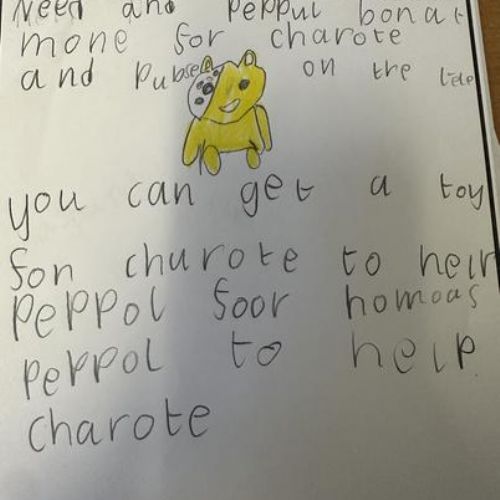 Need and Peppul bonat
mone for charote
and Pubsey on the lide
you can get a toy
fon churote to help
Peppol foor homoas
Peppol to help
charote